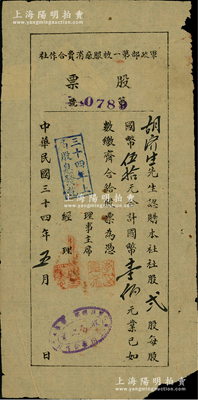 上海陽明拍賣
軍政部第一被服廠消費合作社
股票
號 0789
胡濟生先生認購本社社股貳股每股
國幣伍拾元計國幣壹佰元業已如
數繳齊合給此票為憑
理事主席
經理
三十四年上
中華民國三十四年五月 日
上海陽明拍賣